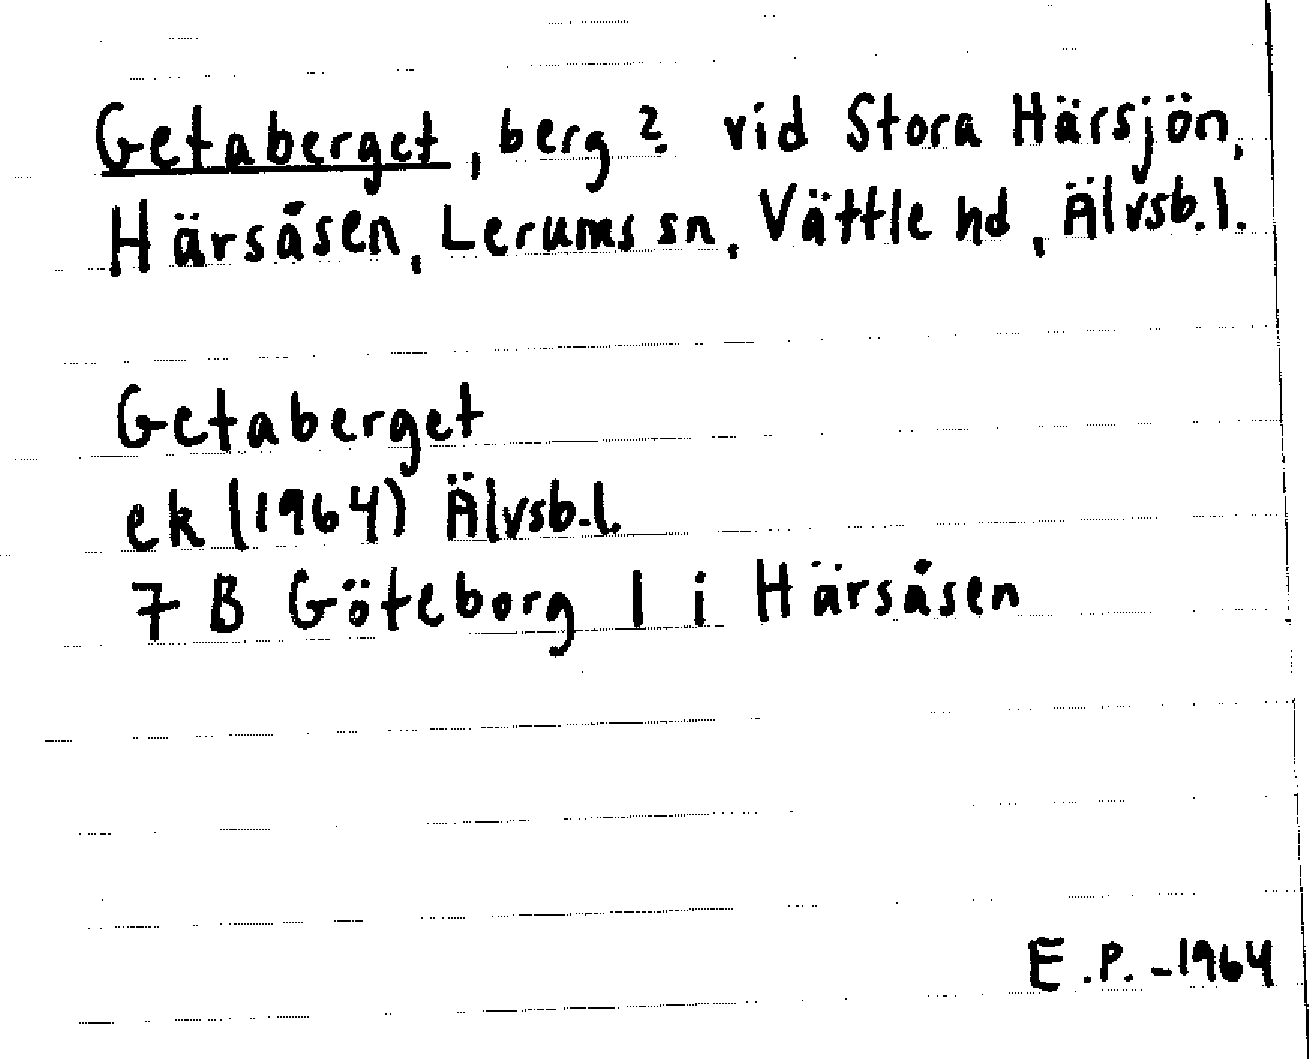 Getaberget, berg? vid Stora Härsjön,
Härsåsen, Lerums sn, Vättle hd, Älvsb. l.
Getaberget
ek (1964) Älvsb. l.
7 B Göteborg 1 i Härsåsen
E.P. -1964